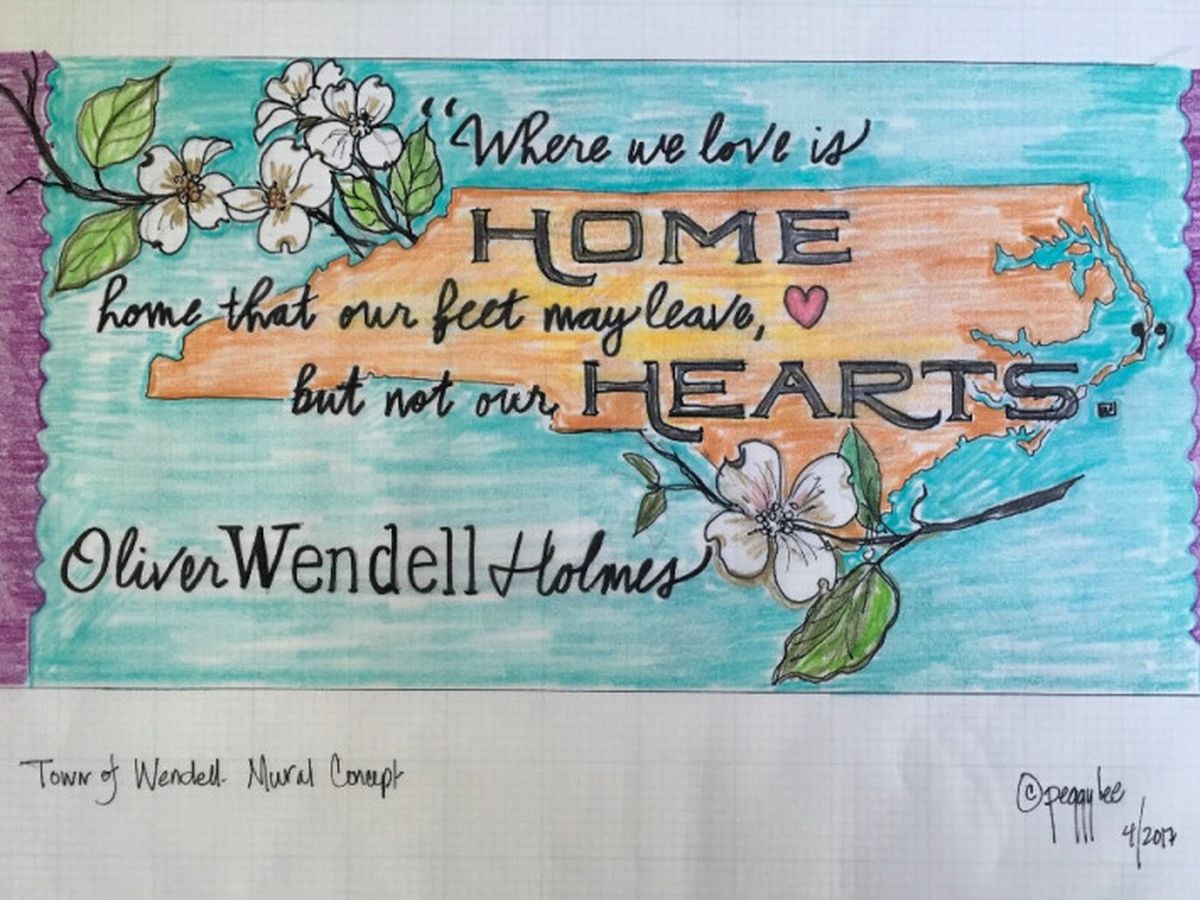 “Where we love is
HOME
home that our feet may leave,
but not our HEARTS.”
Oliver Wendell Holmes
Town of Wendell- Mural Concept
©peggylee
4/2017